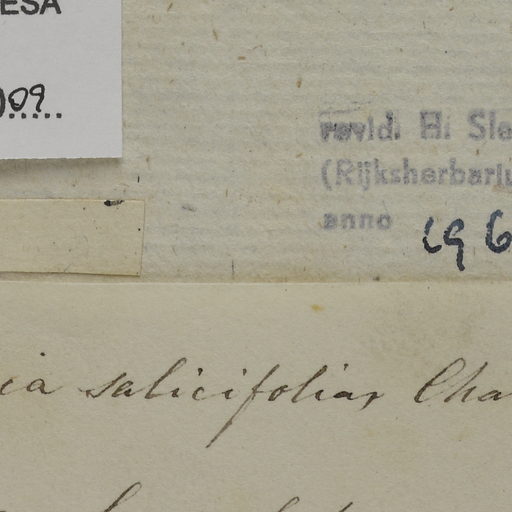 ESA
009.....
revid. H. Sle
(Rijksherbariu
anno 196
ia salicifolias Cha